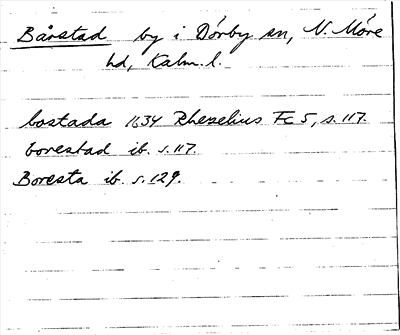 Bårstad by i Dörby sn, N. Möre
hd, Kalm. l.
bastada 1634 Rhezelius Fc 5, s. 117.
borestad ib. s. 117.
Boresta ib. s. 129.